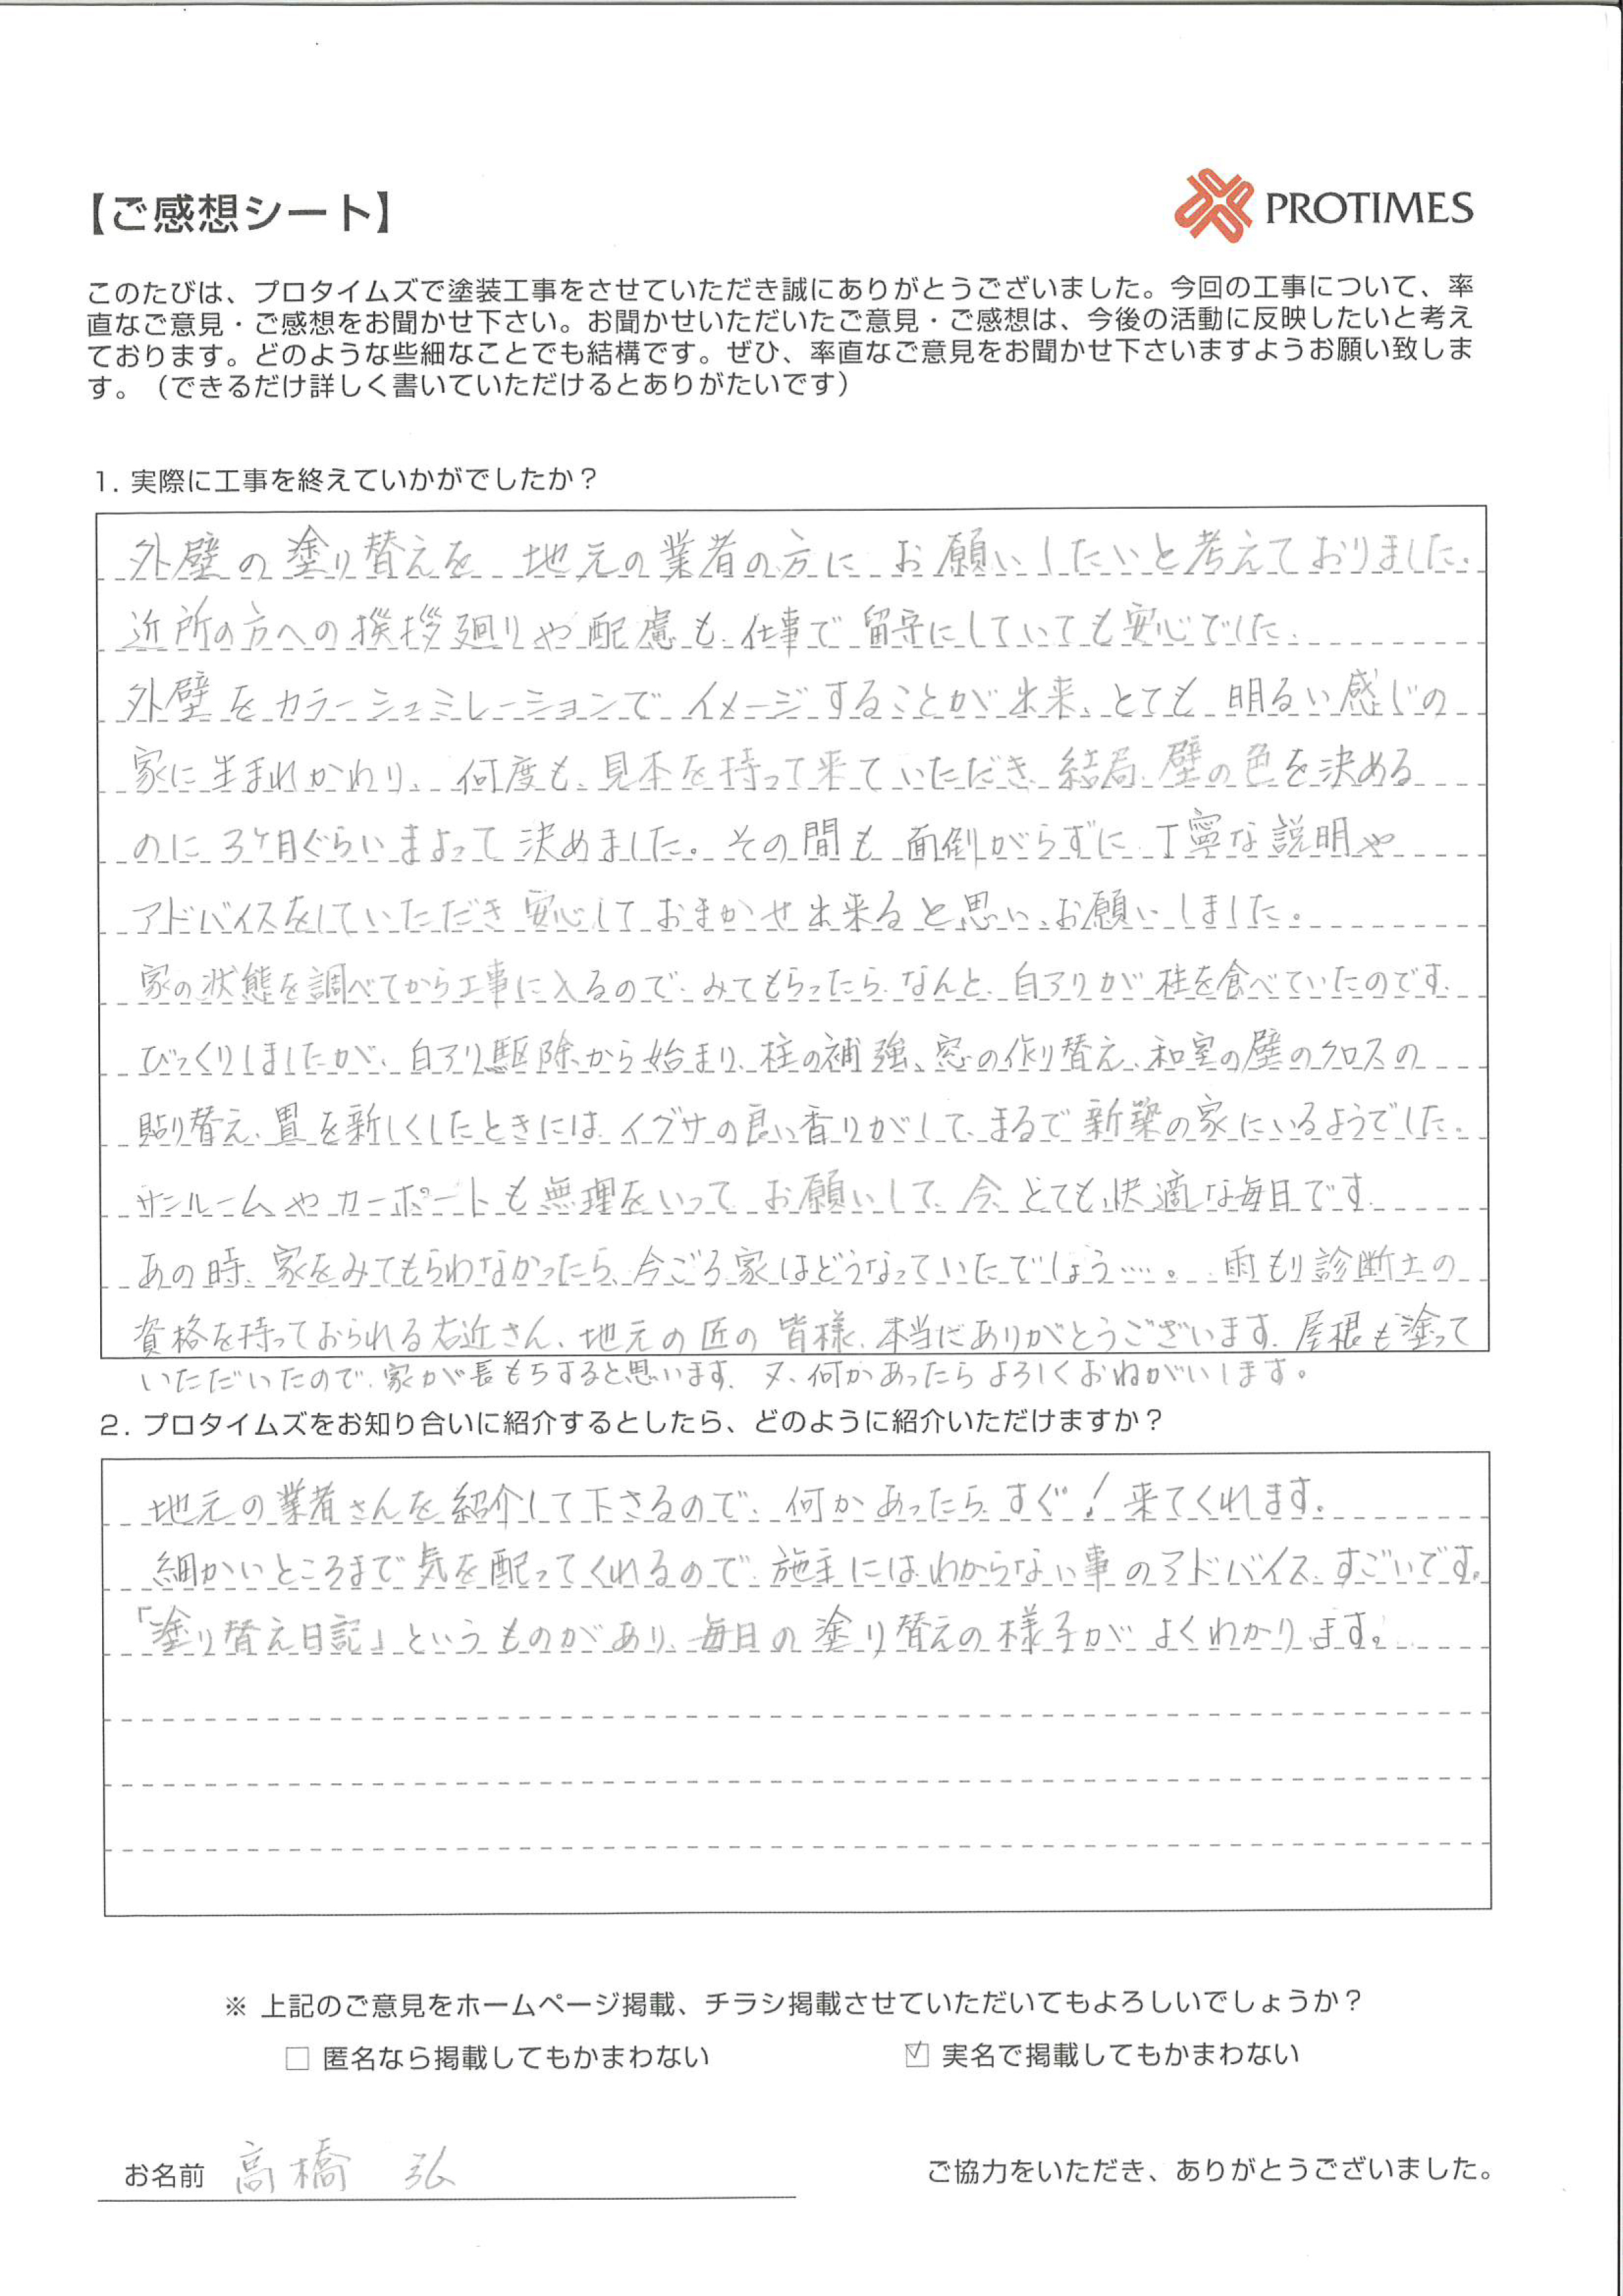 【ご感想シート】
PROTIMES
このたびは、プロタイムズで塗装工事をさせていただき誠にありがとうございました。今回の工事について、率
直なご意見・ご感想をお聞かせ下さい。お聞かせいただいたご意見・ご感想は、今後の活動に反映したいと考え
ております。どのような些細なことでも結構です。ぜひ、率直なご意見をお聞かせ下さいますようお願い致しま
す。（できるだけ詳しく書いていただけるとありがたいです）
1. 実際に工事を終えていかがでしたか？
外壁の塗り替えを 地元の業者の方に お願いしたいと考えておりました。
近所の方への挨拶廻りや配慮も、仕事で留守にしていても安心でした。
外壁をカラーシュミレーションで イメージすることが出来、とても 明るい感じの
家に生まれかわり、何度も、見本を持って来ていただき、結局、壁の色を決める
のに 3ヶ月ぐらいまよって 決めました。その間も 面倒がらずに 丁寧な説明や
アドバイスをしていただき 安心して おまかせ出来ると思い、お願いしました。
家の状態を調べてから工事に入るので、みてもらったら、なんと、白アリが 柱を食べていたのです。
びっくりしましたが、白アリ駆除から始まり、柱の補強、窓の作り替え、和室の壁のクロスの
貼り替え、畳を新しくしたときには、イグサの良い香りがして、まるで新築の家にいるようでした。
サンルームやカーポートも無理をいって お願いして、今、とても快適な毎日です。
あの時、家をみてもらわなかったら、今ごろ家はどうなっていたでしょう……。 雨もり診断士の
資格を持っておられる右近さん、地元の匠の皆様、本当にありがとうございます。屋根も塗って
いただいたので、家が長もちすると思います。又、何かあったらよろしくおねがいします。
2. プロタイムズをお知り合いに紹介するとしたら、どのように紹介いただけますか？
地元の業者さんを紹介して下さるので、何かあったら、すぐ！来てくれます。
細かいところまで気を配ってくれるので、施主にはわからない事のアドバイス、すごいです。
「塗り替え日記」というものがあり、毎日の塗り替えの様子がよくわかります。
※ 上記のご意見をホームページ掲載、チラシ掲載させていただいてもよろしいでしょうか？
□ 匿名なら掲載してもかまわない ☑ 実名で掲載してもかまわない
お名前 高橋 弘 ご協力をいただき、ありがとうございました。